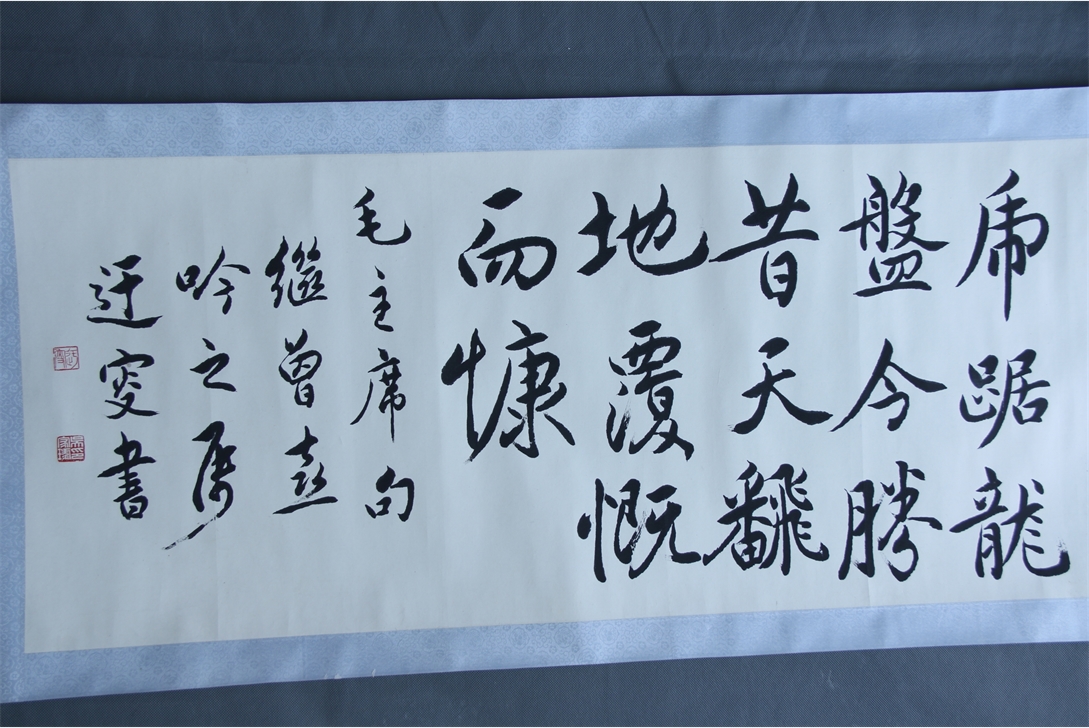 虎踞龍
盤今勝
昔天飜
地覆慨
而慷
毛主席句
繼曾喜
吟之属
迂叟書